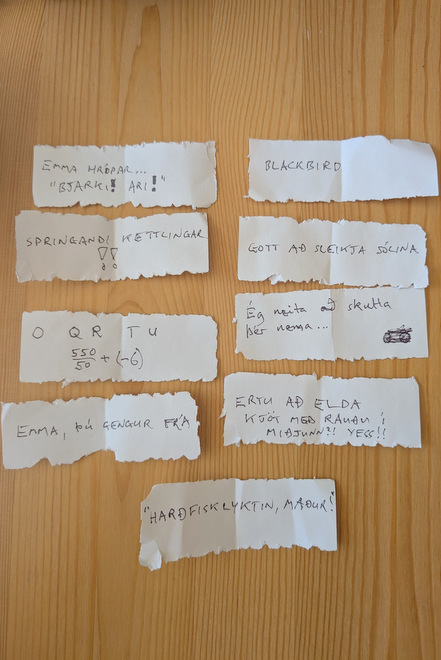 EMMA HRÓPAR...
"BJARKI! ARI!"
BLACKBIRD
SPRINGANDI KETTLINGAR
!!
GOTT AÐ SLEIKJA SÓLINA
O Q R T U
550/50 + (-6)
Ég neita að skutla
þér nema...
EMMA, ÞÚ GENGUR FRÁ
ERTU AÐ ELDA
KJÖT MEÐ RAUÐU Í
MIÐJUNNI?! YESS!!
"HARÐFISKLYKTIN, MAÐUR!"